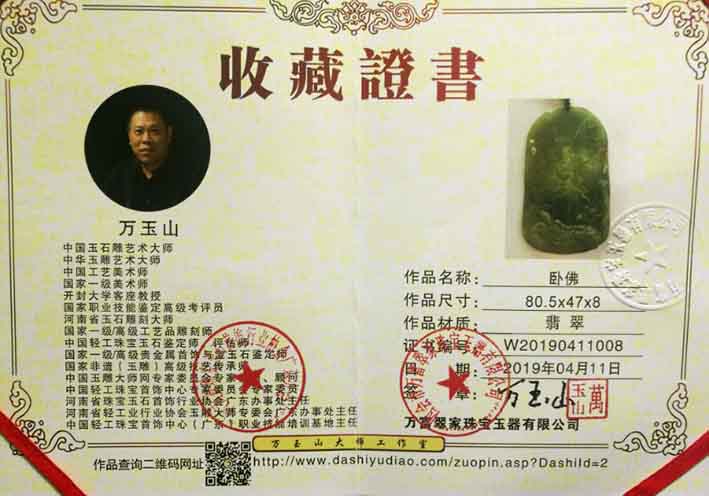 收藏證書
万玉山
中国玉石雕艺术大师
中华玉雕艺术大师
中国工艺美术师
国家一级美术师
开封大学客座教授
国家职业技能鉴定高级考评员
河南省玉石雕刻大师
国家一级/高级工艺品雕刻师
中国轻工珠宝玉石鉴定师、评估师
国家一级/高级贵金属首饰与宝玉石鉴定师
国家非遗（玉雕）高级技艺传承师
中国玉雕大师网专家委员会专家 顾问
中国轻工珠宝首饰中心专家委员会专家委员
河南省珠宝玉石首饰行业协会广东办事处主任
河南省轻工业行业协会玉雕大师专委会广东办事处主任
中国轻工珠宝首饰中心（广东）职业技能培训基地主任
作品名称: 卧佛
作品尺寸: 80.5x47x8
作品材质: 翡翠
证书编号: W20190411008
日期: 2019年04月11日
签章: 万玉山
萬玉山
万富翠家珠宝玉器有限公司
万玉山大师工作室
作品查询二维码网址 http://www.dashiyudiao.com/zuopin.asp?DashiId=2